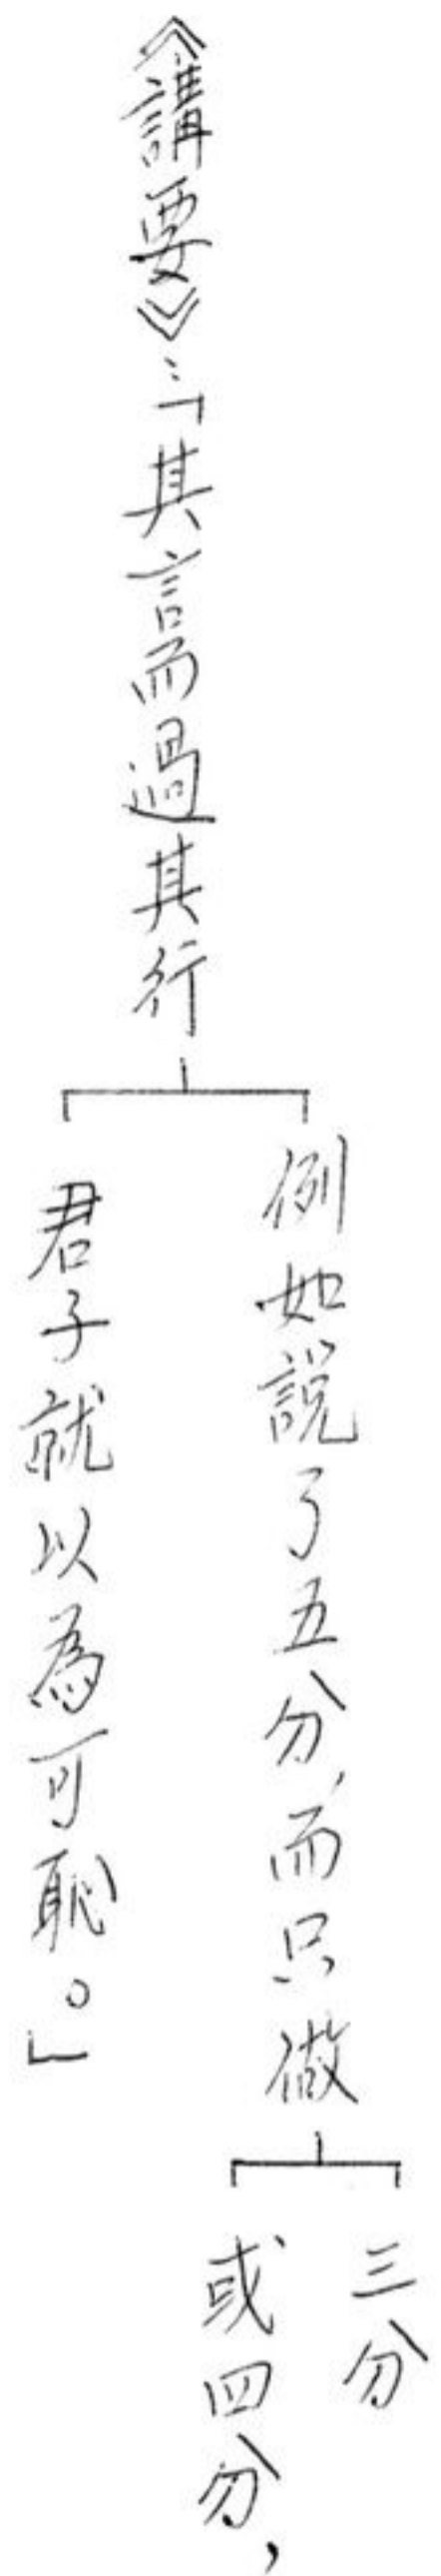 《講要》：「其言而過其行
例如說了五分，而只做
三分
或四分，
君子就以為可恥。」